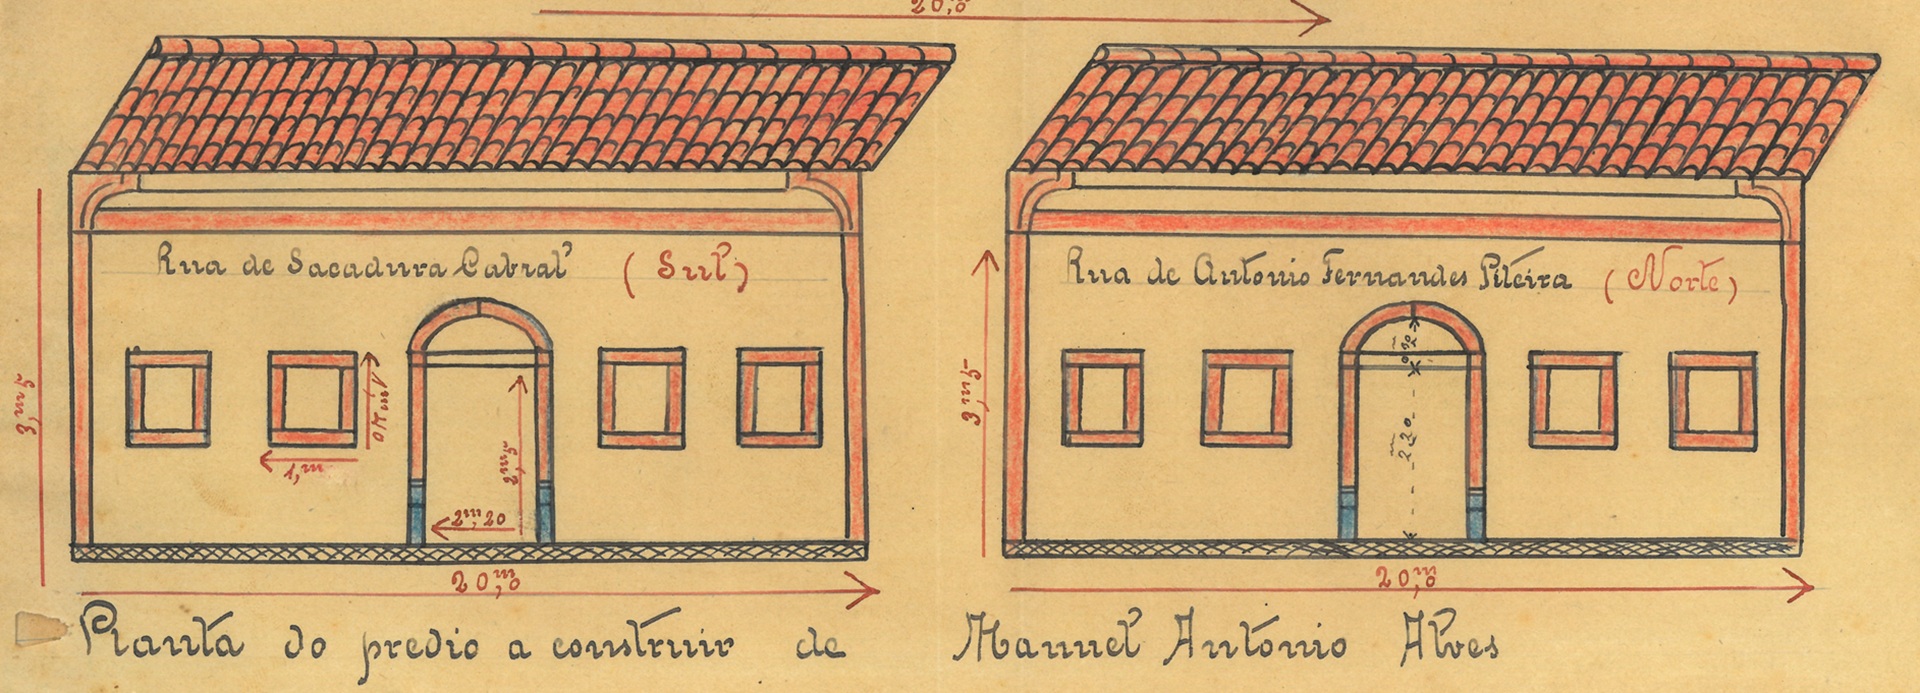 20,m0
Rua de Sacadura Cabral (Sul)
3,m5
1,m
2,m5
2,m20
20,m0
Rua de Antonio Fernandes Piteira (Norte)
3,m5
2,20
20,m0
Planta do predio a construir de Manuel António Alves